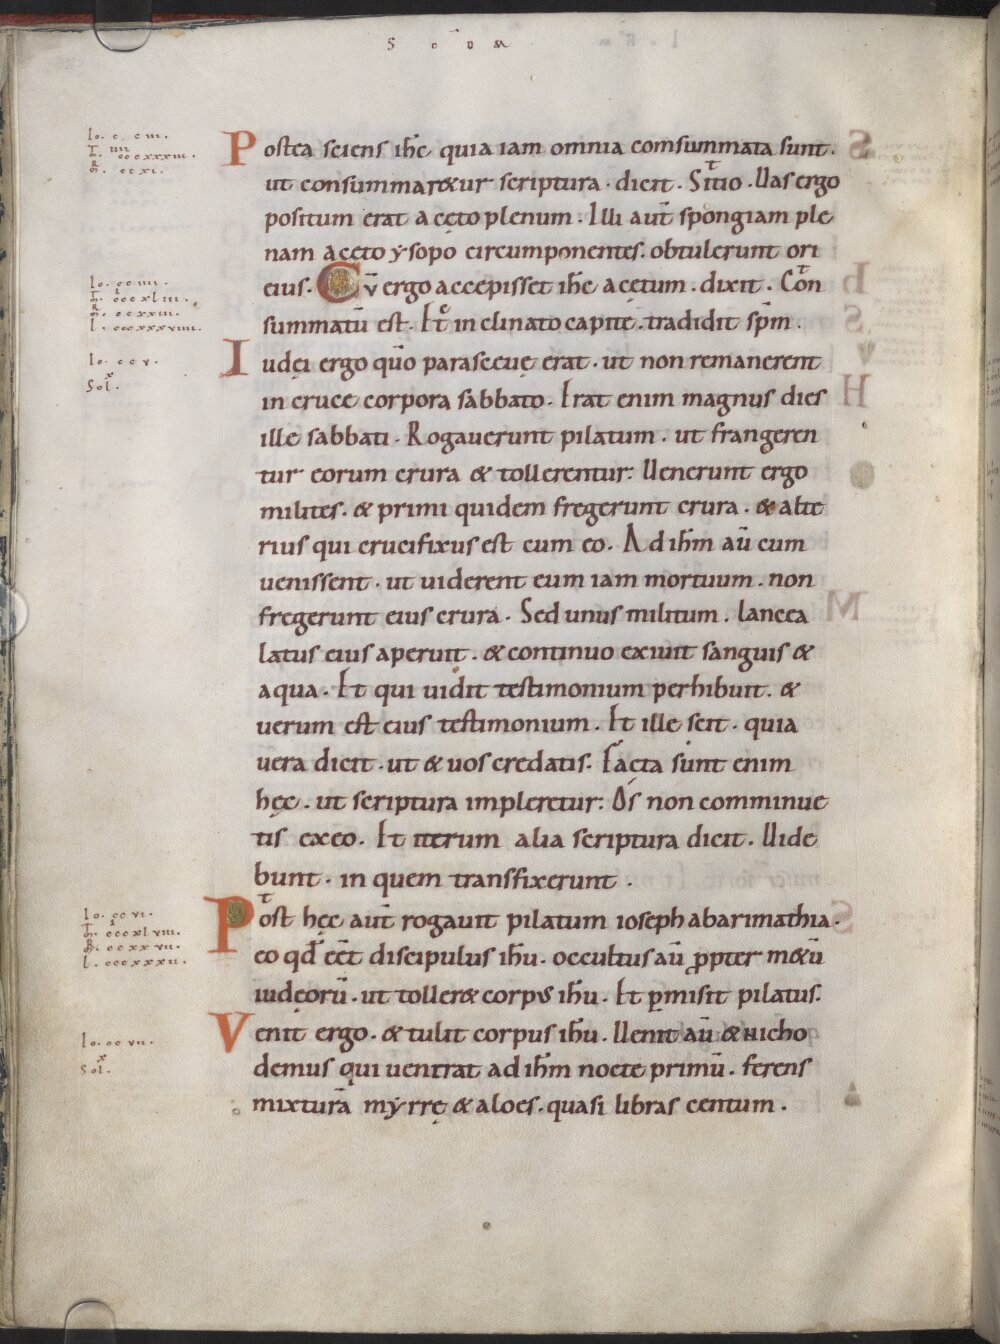 S c̄ d̄ m
Io. c. c iii.
M. iiii cccxxxiii.
R. cc xi.
Postea sciens ih̄c quia iam omnia comsummata sunt.
ut consummaretur scriptura. dicit. Sitio. Uas ergo
positum erat aceto plenum. Illi aut̄ spongiam ple
nam aceto ẏsopo circumponentes. obtulerunt ori
Io. cc iiii.
M. cccxliii.
R. ccxxiii.
l. cccxxxviiii.
eius. Cū ergo accepisset ih̄c acetum. dixit. Con
summatū est. Et inclinato capite. tradidit sp̄m.
Io. cc v.
Sol. x
Iudęi ergo qūo parasceue erat. ut non remanerent
in cruce corpora sabbato. Erat enim magnus dies
ille sabbati. Rogauerunt pilatum. ut frangeren
tur eorum crura & tollerentur. Uenerunt ergo
milites. & primi quidem fregerunt crura. & alte
rius qui crucifixus est cum eo. Ad ih̄m aū cum
uenissent. ut uiderent eum iam mortuum. non
fregerunt eius crura. Sed unus militum. lancea
latus eius aperuit. & continuo exiuit sanguis &
aqua. Et qui uidit testimonium perhibuit. &
uerum est eius testimonium. Et ille scit. quia
uera dicit. ut & uos credatis. Facta sunt enim
hęc. ut scriptura impleretur: Os non comminue
tis ex eo. Et iterum alia scriptura dicit. Uide
bunt. in quem transfixerunt.
Io. cc vi.
M. cccxlviii.
R. ccxxvii.
l. cccxxxii.
Post hęc aut̄ rogauit pilatum ioseph abarimathia.
eo qđ eēt discipulus ih̄u. occultus aū ꝓpter m&ū
iudęorū. ut toller& corpus ih̄u. Et ꝑmisit pilatus.
Io. cc vii.
Sol. x
Venit ergo. & tulit corpus ih̄u. Uenit aū & nicho
demus qui uenerat ad ih̄m nocte primū. ferens
mixturā mẏrrę & aloes. quasi libras centum.